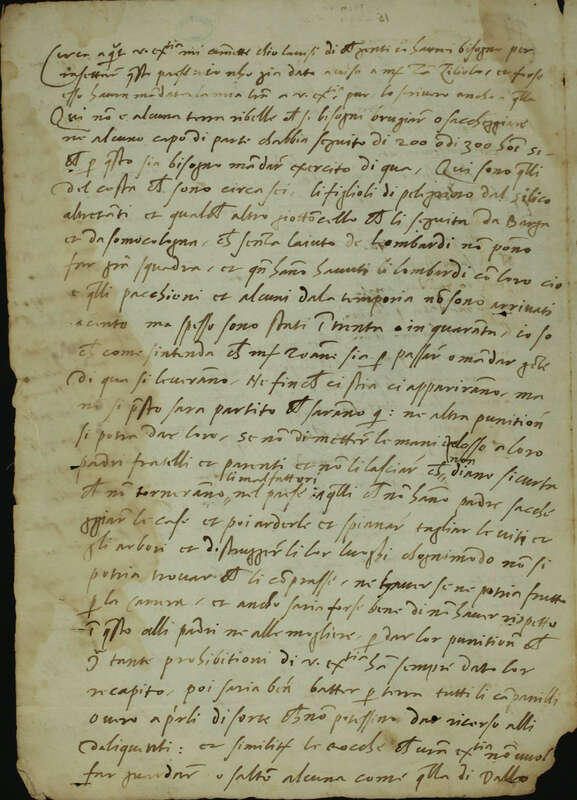 Circa a q̃llo v. extia mi comette ch'io lavisi di che genti io havrei bisogno per
rassettar q̃sto paese io nho gia dato aviso a mr Zã Ziliolo, et forse
esso havra mandata la mia lr̃a a v. extia pur lo scrivero ancho a q̃lla
Qui non e alcuna terra ribelle che si bisogni brugiar o saccheggiare
ne alcuno capo di parte chabbia seguito di 200 o di 300 hoĩ si
che p q̃sto sia bisogno mandar exercito di qua, Qui sono q̃lli
del costa che sono circa sei, li figlioli di pelegrino dal silico
altretanti et qualche altro giottoncello che li seguita da Barga
et da somocologna, che senza laiuto de lombardi nõ pono
far grã squadra, et qñ hano havuti li lombardi cõ loro cio
e q̃lli pacchioni et alcuni dala temporia nõ sono arrivati
a cento ma spesso sono stati ĩ trenta o in quarãta, io so
che come sintenda che mr zoane sia p passar o mandar gẽte
di qua si leverano, Ne fin che ci stia ci appariranno, ma
no si p̃sto sara partito che sarano q̃: ne altra punitiõn
si potria dar loro, se nõ di metter le mani adosso a loro
padri fratelli et parenti et nõ li lasciar che nõ diano sicurta
che nõ tornerano li malfattori nel paese, et q̃lli che nõ hano padre sacche
ggiar le case et poi arderle et spianar tagliar le viti et
gli arbori et distrugger li lor luoghi ch'ognimodo nõ si
potria trovar chi li cõprasse, ne haver se ne potria frutto
p la camera, et ancho saria forse bene di nõ haver rispetto
ĩ q̃sto alli padri ne alle mogliere, p dar lor punitiõn che
cõ tante prohibitioni di v. extia hã sempre dato lor
recapito, poi saria ben batter p terra tutti li cãpanilli
overo aprirli di sorte che nõ potessino dar ricorso alli
deliquenti: et similiter le rocche che vra extia nõ vuol
far guardar o salvo alcuna come q̃lla di Dallo